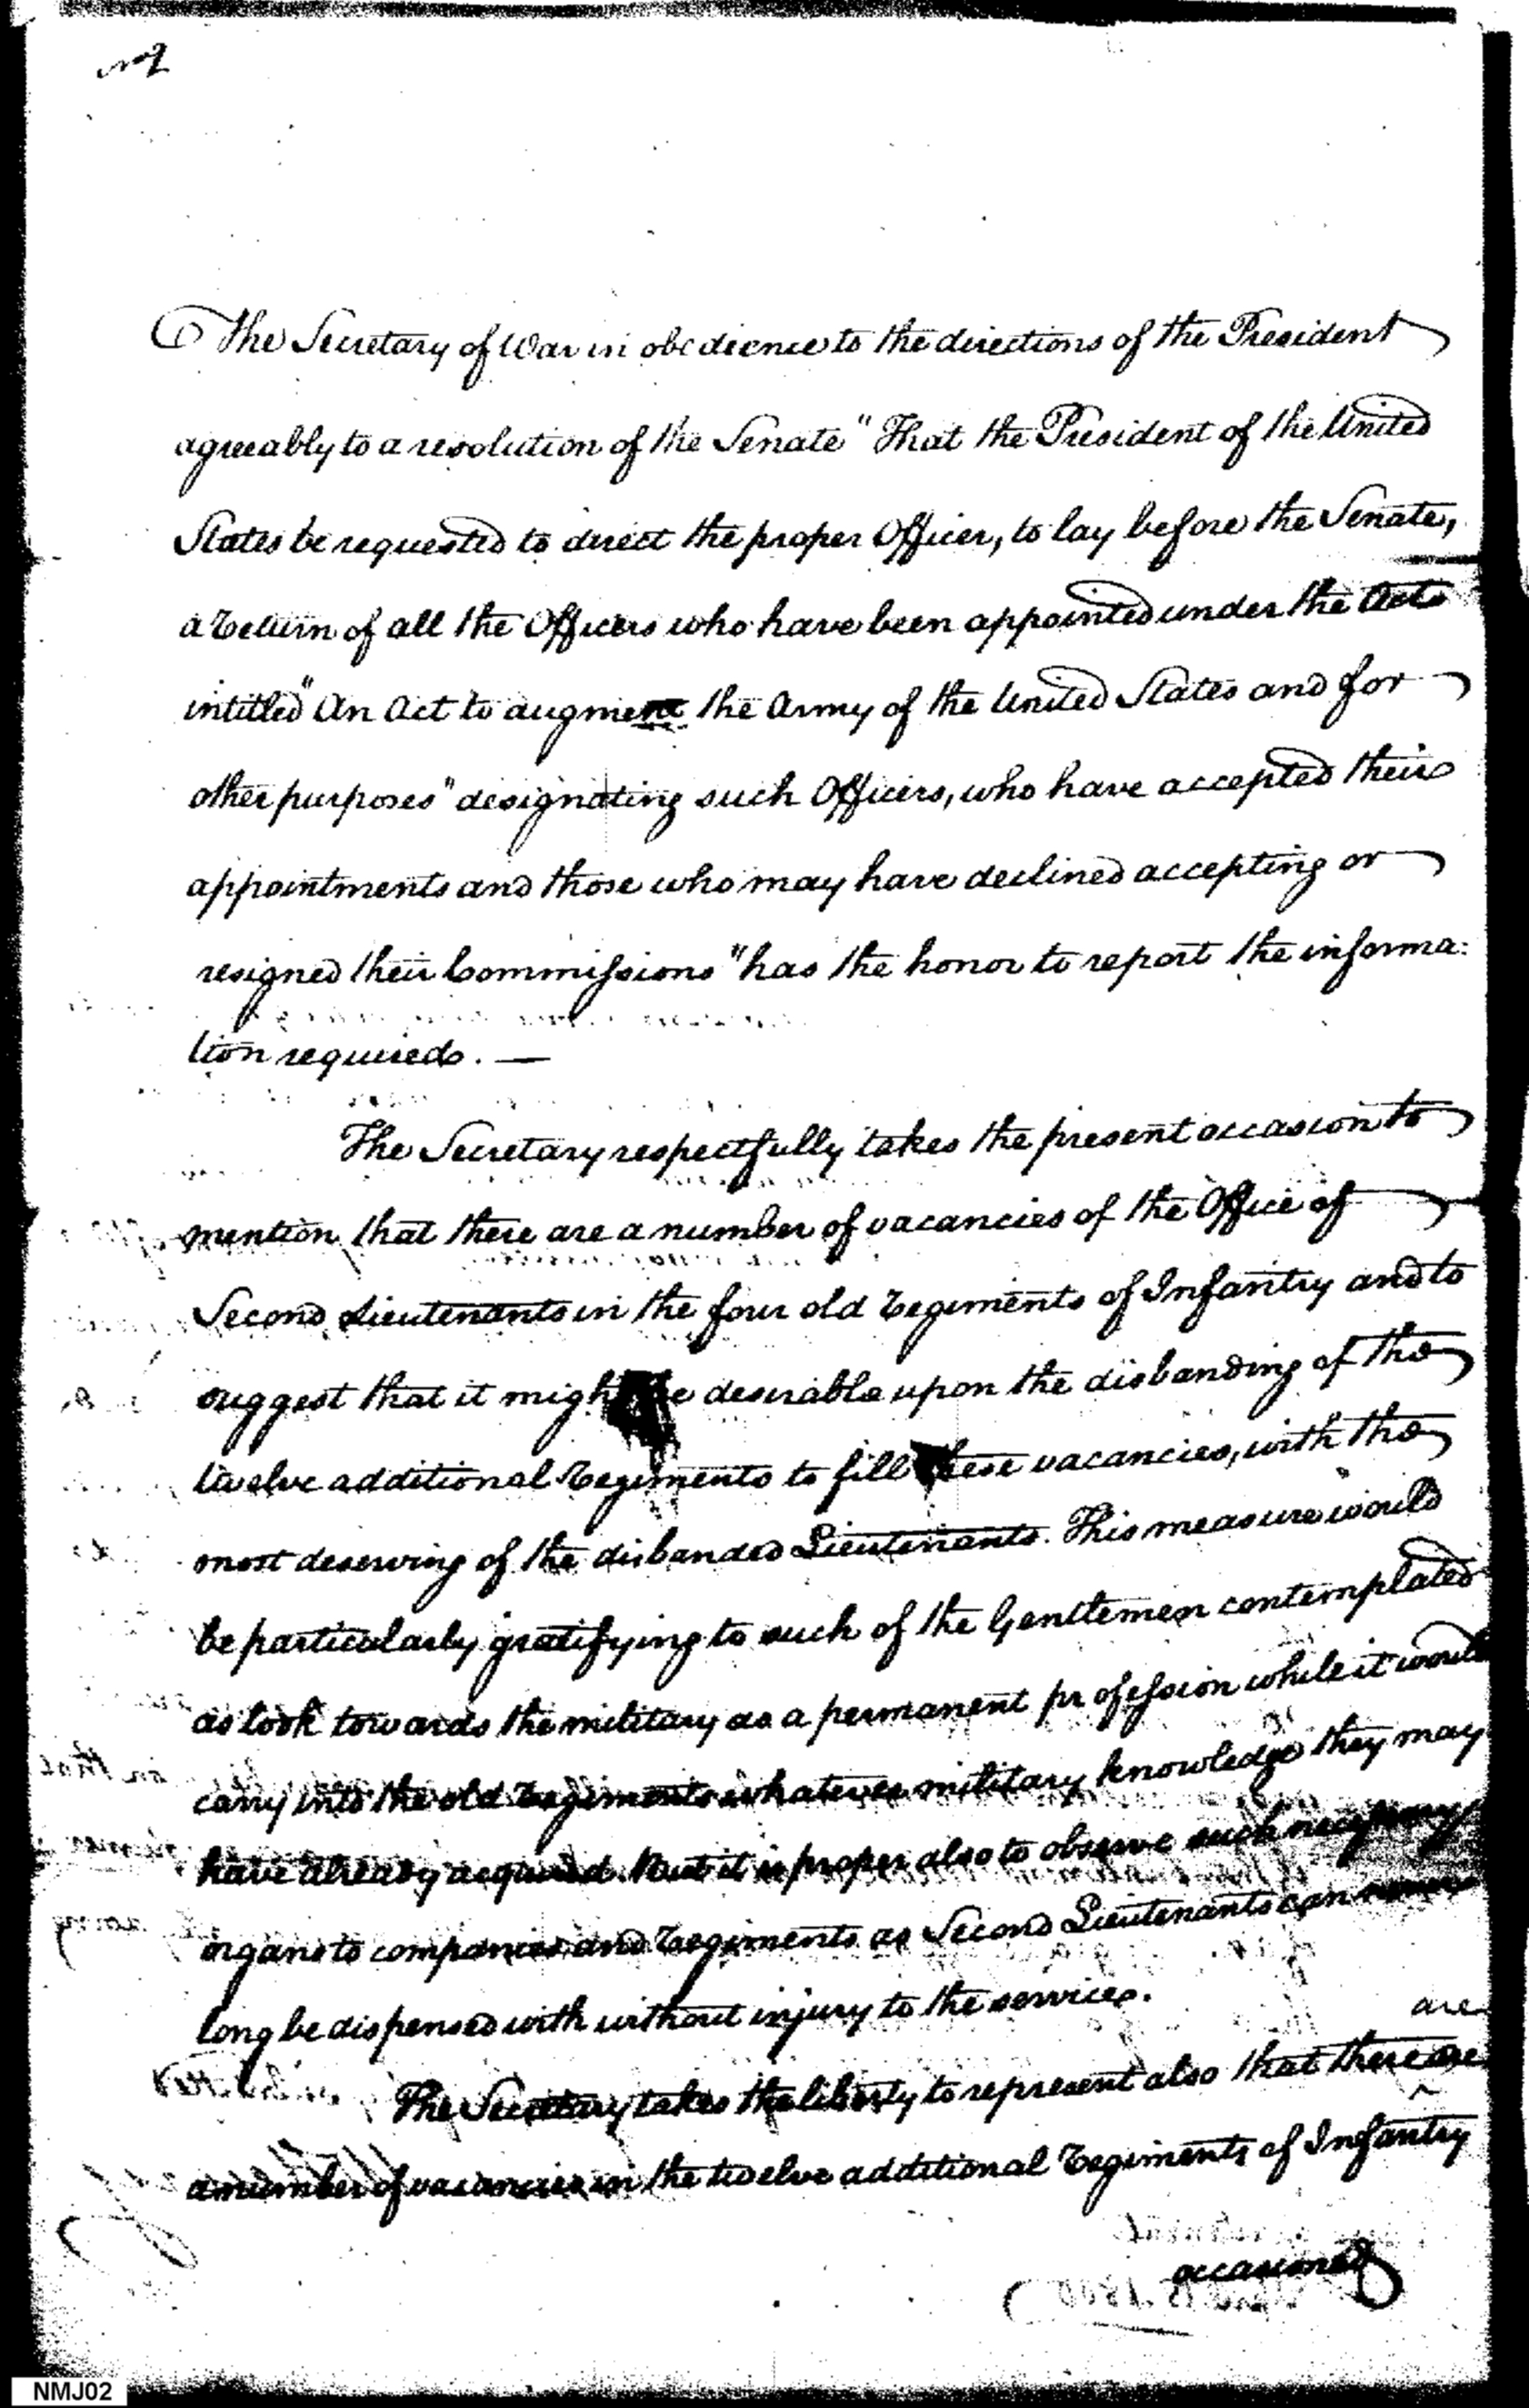 The Secretary of War in obedience to the directions of the President
agreeably to a resolution of the Senate "That the President of the United
States be requested to direct the proper Officer, to lay before the Senate,
a Return of all the Officers who have been appointed under the Act
intitled "An Act to augment the Army of the United States and for
other purposes" designating such Officers, who have accepted their
appointments and those who may have declined accepting or
resigned their Commissions" has the honor to report the informa:
tion required. —
The Secretary respectfully takes the present occasion to
mention that there are a number of vacancies of the Office of
Second Lieutenants in the four old Regiments of Infantry and to
suggest that it might be desirable upon the disbanding of the
twelve additional Regiments to fill these vacancies, with the
most deserving of the disbanded Lieutenants. This measure would
be particularly gratifying to such of the Gentlemen contemplated
as look towards the military as a permanent profession while it would
carry into the old Regiments whatever military knowledge they may
have already acquired. But it is proper also to observe such necessary
organs to companies and Regiments as Second Lieutenants can never
long be dispensed with without injury to the service.
are
The Secretary takes the liberty to represent also that there are
a number of vacancies in the twelve additional Regiments of Infantry
occasioned
NMJ02